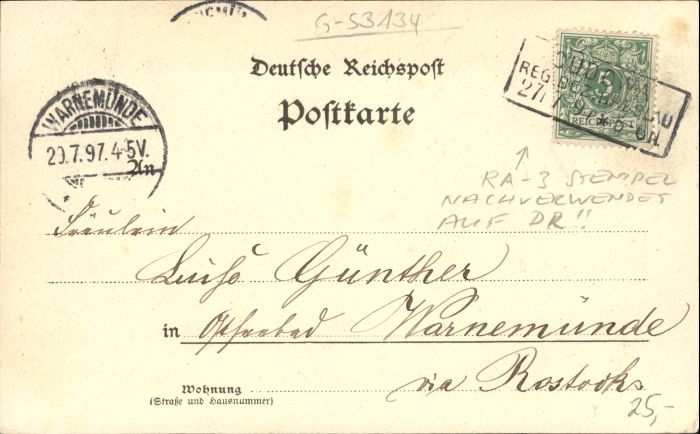 G-S3134
Deutsche Reichspost
Postkarte
WARNEMÜNDE
20.7.97. 4-5V.
An
5
REICHSPOST
REG. BEZ.
27/7 9
RA-3 STEMPEL
NACHVERWENDET
AUF DR!!
Fräulein
Luise Günther
in Ostseebad Warnemünde
via Rostock
Wohnung
(Straße und Hausnummer)
25,-